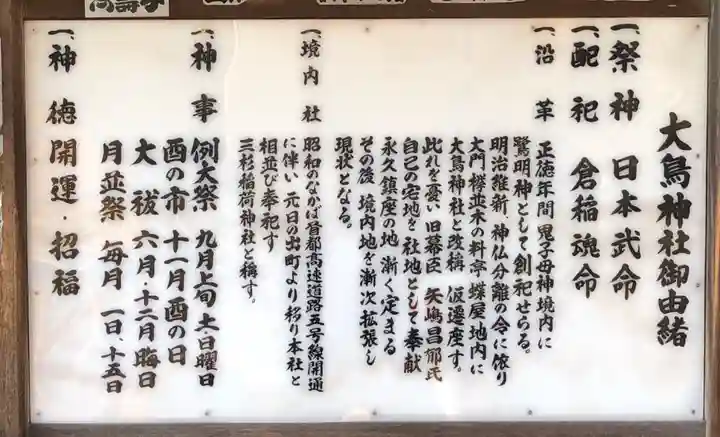 大鳥神社御由緒
一、祭神 日本武命
一、配祀 倉稲魂命
一、沿革 正徳年間 鬼子母神境内に
鷲明神として創祀せらる。
明治維新、神仏分離の令に依り
大門欅並木の料亭 蝶屋地内に
大鳥神社と改稱 仮遷座す。
此れを憂い旧幕臣 矢嶋昌郁氏
自己の宅地を社地として奉献
永久鎮座の地 漸く定まる
その後 境内地を漸次拡張し
現状となる。
一、境内社 昭和のなかば首都高速道路五号線開通
に伴い 元日の出町より移り本社と
相並び奉祀す
三杉稲荷神社と稱す。
一、神事 例大祭 九月上旬 土日曜日
酉の市 十一月酉の日
大祓 六月・十二月晦日
月並祭 毎月 一日、十五日
一、神徳 開運・招福